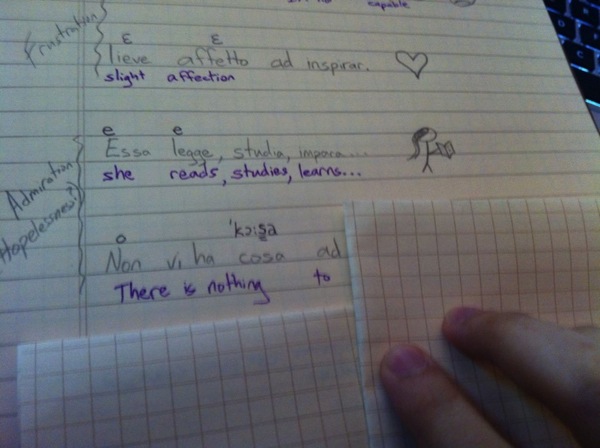 capable
Frustration
ɛ ɛ
lieve affetto ad inspirar.
slight affection
Admiration
Hopelessness?
e e
Essa legge, studia, impara...
she reads, studies, learns...
o
Non vi ha cosa ad
There is nothing to